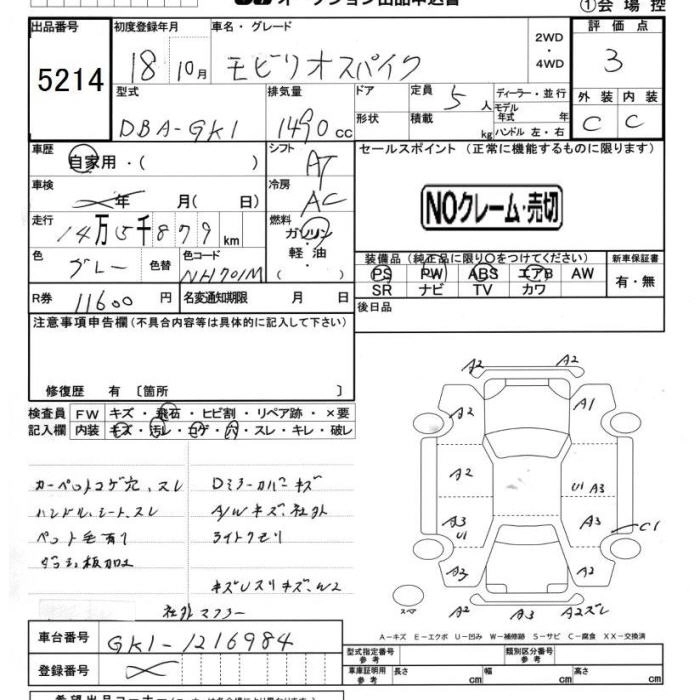 オークション出品申込書
①会場控
出品番号 初度登録年月 車名・グレード 2WD・4WD 評価点
5214 18 10月 モビリオスパイク 3
型式 排気量 ドア 定員 5人 ディーラー・並行 外装 内装
DBA-GK1 1490cc 形状 積載 kg モデル年式 年 C C
ハンドル 左・右
車歴 シフト セールスポイント (正常に機能するものに限ります)
自家用・( ) AT
車検 年 月( 日) 冷房 AC
NOクレーム・売切
走行 14万5千879km 燃料 ガソリン
軽・油
( )
色 グレー 色替 色コード NH701M
装備品 (純正品に限り○をつけてください) 新車保証書
PS PW ABS エアB AW 有・無
SR ナビ TV カワ
R券 11600円 名変通知期限 月 日
後日品
注意事項申告欄(不具合内容等は具体的に記入して下さい)
修復歴 有 〔箇所 〕
検査員 FW キズ・飛石・ヒビ割・リペア跡・×要
記入欄 内装 キズ・汚レ・コゲ・穴・スレ・キレ・破レ
カーペットコゲ穴、スレ Dミラーカバーキズ
ハンドル、シート、スレ A/Wキズ、社外
ペット毛有り ライトクモリ
板加工
キズUスリキズ、W2
社外マフラー
A2 A2
A2 A1
A2 U1 A3
A3 U1 A3 C1
A2 A2
スペア A2 A3 A2ズレ
A-キズ E-エクボ U-凹み W-補修跡 S-サビ C-腐食 XX-交換済
車台番号 GK1-1216984
登録番号
型式指定番号 参考 類別区分番号 参考
車庫証明用 参考 長さ cm 幅 cm 高さ cm
希望出品コーナー